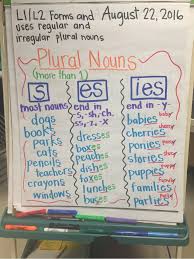 L1/L2 Forms and August 22, 2016
uses regular and
irregular plural nouns
Plural Nouns
(more than 1)
s es ies
most nouns end in end in -y
s, -sh, ch,
-x, -z
dogs
books
parks
cats
pencils
teachers
crayons
windows
dresses
boxes
peaches
dishes
foxes
lunches
buses
babies baby
cherries cherry
ponies pony
stories story
puppies puppy
families family
parties party